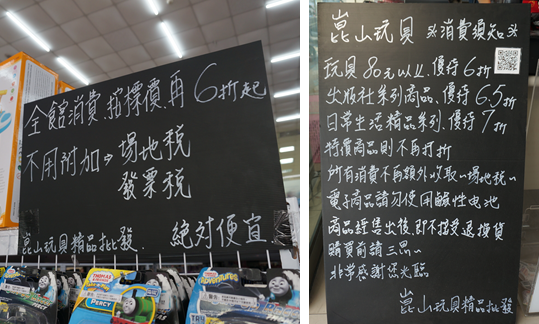 全館消費.按標價再6折起
不用附加→場地稅
發票稅
絕對便宜
崑山玩具精品批發.
THOMAS
PERCY
ADVENTURES
崑山玩具 ※消費須知※
玩具80元以上.優待6折
出版社系列商品.優待6.5折
日常生活精品系列.優待7折
特價商品則不再打折
所有消費不再額外收取~場地稅~
電子商品請勿使用鹼性電池
商品經售出後.即不接受退換貨
購買前請三思~
非常感謝您光臨
崑山玩具精品批發